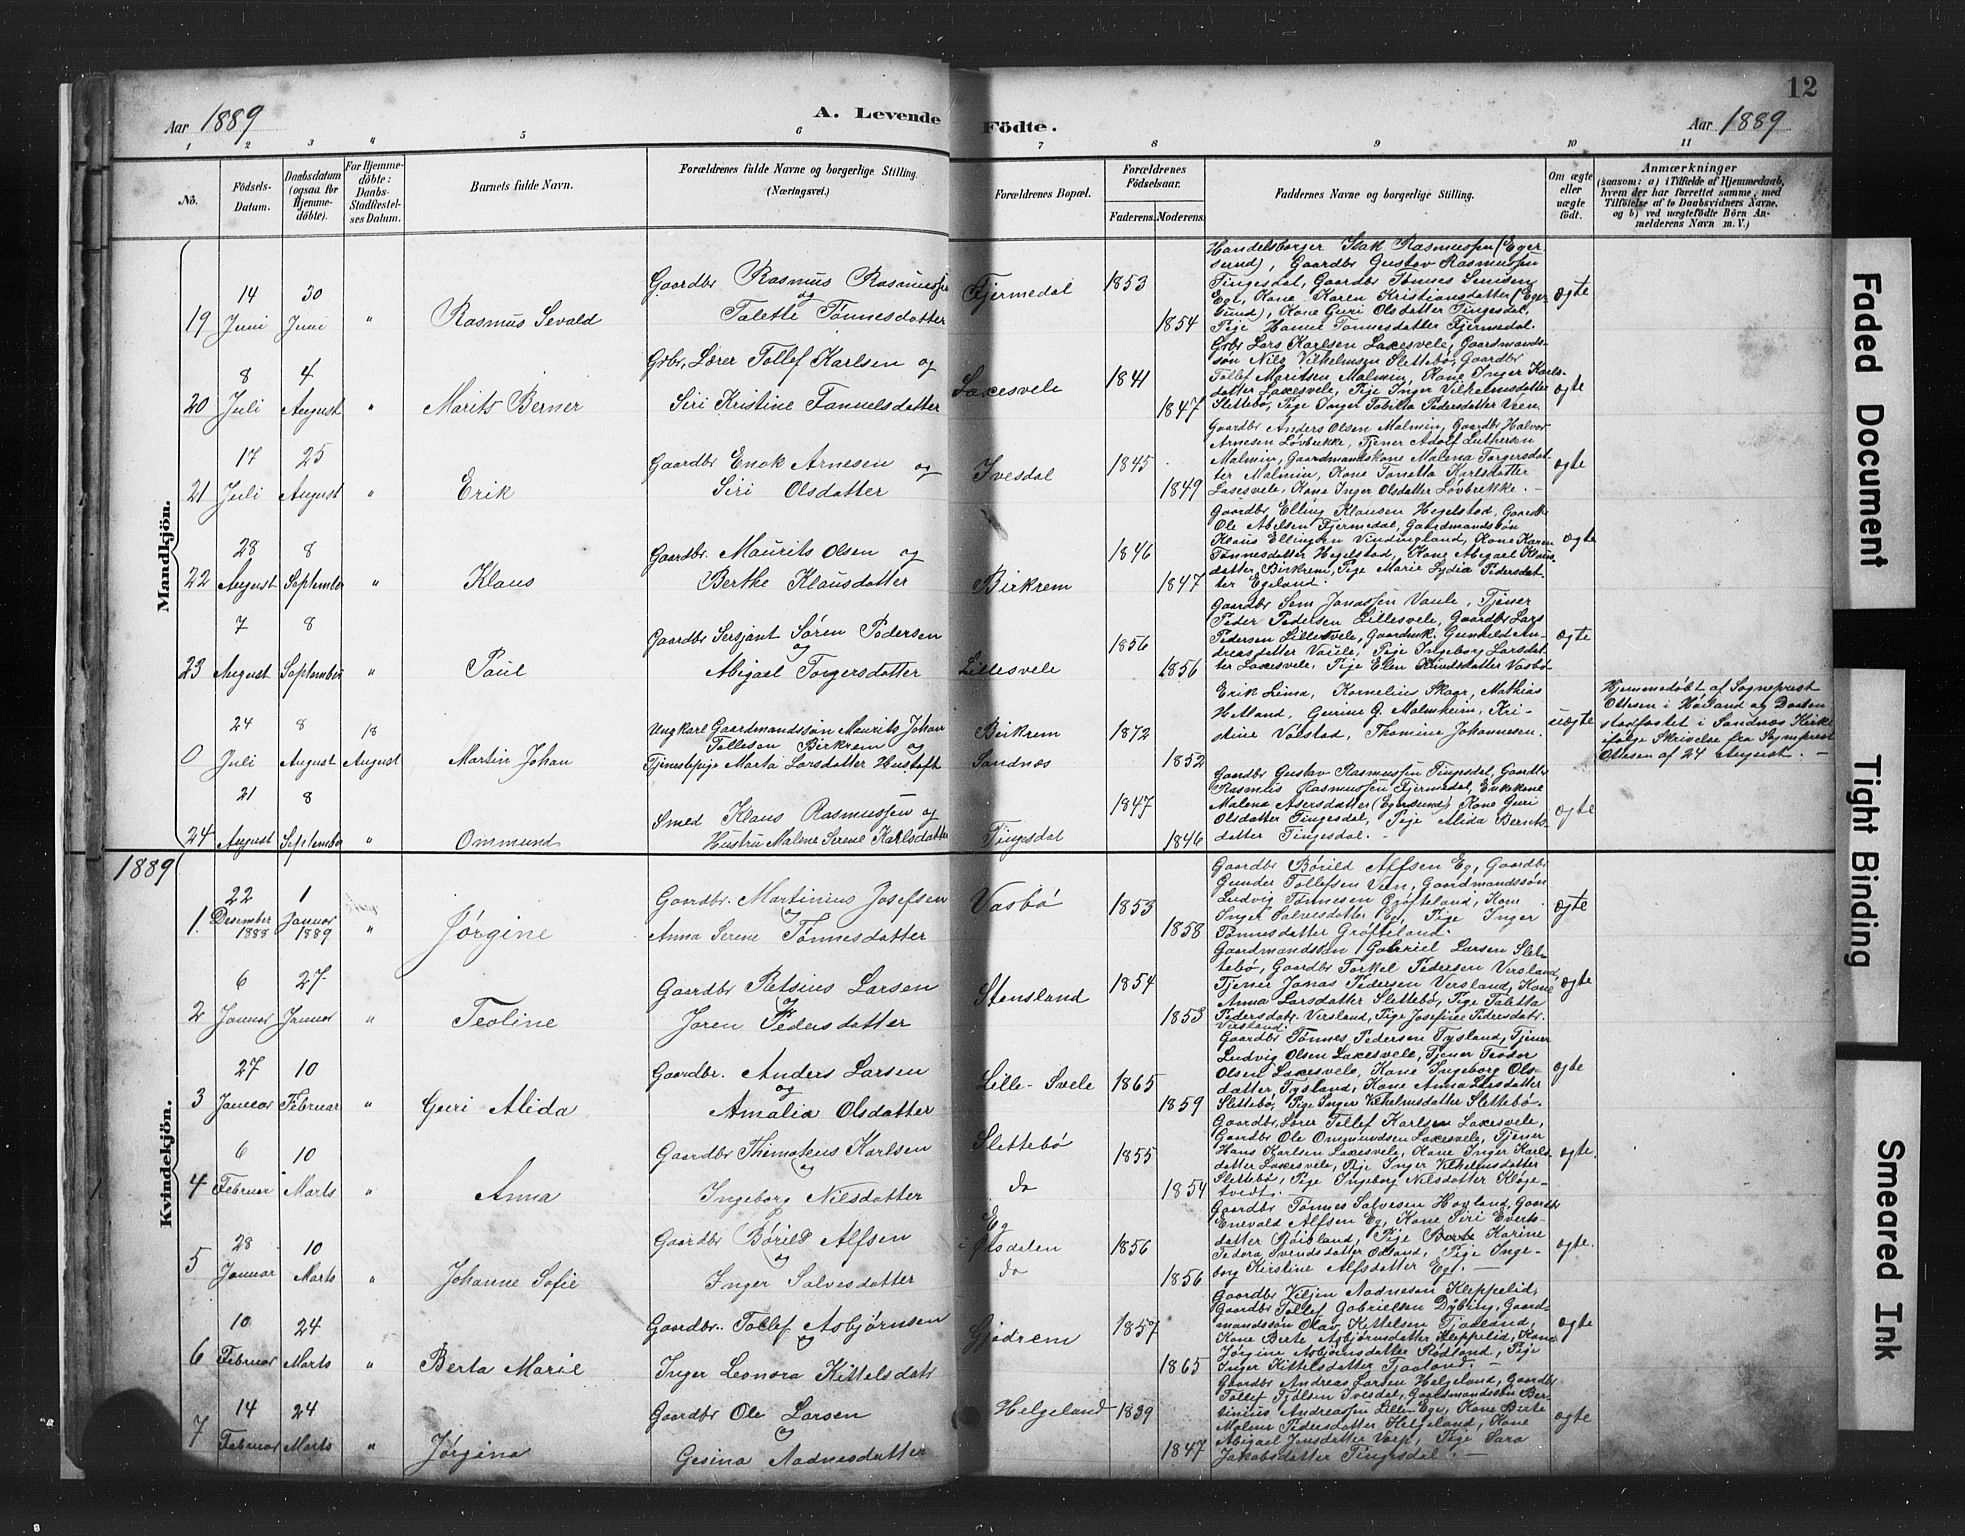 12
Aar 1889
A. Levende Födte.
Aar 1889
1 2 3 " 5 6 7 8 9 10 11
No.
Födsels-Datum.
Daabsdatum (ogsaa for Hjemme-döbte).
For Hjemme-döbte: Daabs-Stadfæstel-ses Datum.
Barnets fulde Navn.
Forældrenes fulde Navne og borgerlige Stilling. (Næringsvei.)
Forældrenes Bopæl.
Forældrenes Födselsaar.
Faderens. Moderens.
Faddernes Navne og borgerlige Stilling.
Om ægte eller uægte født.
Anmærkninger
(saasom: a) i Tilfælde af Hjemmedaab,
hvem der har forrettet samme, med
Tilföielse af to Daabsvidners Navne,
og b) ved uægtefödte Börn An-
melderens Navn m. V.)
Mandkjön.
19
14 Juni
30 Juni
"
Rasmus Sevald
Gaardbr Rasmus Rasmussen
og
Talette Tønnesdatter
Fjermedal
1853
1854
Handelsborger Isak Rasmussen (Eger-
sund), Gaardbr Gustav Rasmussen
Tingesdal, Gaardbr Tønnes
Ege, Kone Karen Kristiansdatter (Eger-
sund), Kone Guri Olsdatter Tingesdal,
Pige Hanne Tønnesdatter Fjermedal.
ægte
20
8 Juli
4 August
"
Marits Berner
Grbr, Lærer Tollef Karlsen og
Siri Kristine Fannelsdatter
Laxesvele
1841
1847
Grbr Lars Karlsen Laxesvele, Gaardmands-
søn Nils Vilhelmsen Slettebø, Gaardbr
Tollef Maritsen Malmin, Kone Inger Karls-
datter Laxesvele, Pige Inger Vilhelmsdatter
Slettebø, Pige Inger Tobitta Pedersdatter Veen.
ægte
21
17 Juli
25 August
"
Erik
Gaardbr Enok Arnesen og
Siri Olsdatter
Ivesdal
1845
1849
Gaardbr Anders Olsen Malmin, Gaardbr Halvor
Arnesen Løvbrekke, Tjener Adolf Luthersen
Malmin, Gaardmandskone Malena Torgersdat-
ter Malmin, Kone Tonetta Karlsdatter
Laxesvele, Kone Inger Olsdatter Løvbrekke. -
ægte
22
28 August
8 September
"
Klaus
Gaardbr. Maurits Olsen og
Berthe Klausdatter
Birkrem
1846
1847
Gaardbr Elling Klausen Hegelstad, Gaardbr
Ole Abelsen Fjermedal, Gaardmandssøn
Klaus Ellingsen Vindingland, Kone Karen
Tønnesdatter Hegelstad, Kone Abigael Klaus-
datter, Birkrem, Pige Marie Lydia Pedersdat-
ter Egeland.
ægte
23
7 August
8 September
"
Paul
Gaardbr Sersjant Søren Pedersen
og
Abigael Torgersdatter
Lillesvele
1856
1856
Gaardbr Sem Jonassen Vaule, Tjener
Peder Pedersen Lillesvele, Gaardbr Lars
Pedersen Lillesvele, Gaardmk. Gunhild An-
dreasdatter Vaule, Pige Ingeborg Larsdat-
ter Laxesvele, Pige Elen Knudsdatter Vasbø
ægte
0
24 Juli
8 August
18 August
Martin Johan
Ungkarl Gaardmandssøn Maurits Johan
Tollesen Birkrem og
Tjenestepige Marta Larsdatter Hustoft
Birkrem
Sandnæs
1872
1852
Erik Lima, Kornelius Skagr, Mathias
Hetland, Gurine G. Malmheim, Kri-
stine Varstad, Thomine Johannesen.
uægte
Hjemmedøbt af Sogneprest
Ottesen i Høiland og Daaben
stadfæstet i Sandnæs Kirke
ifølge Skrivelse fra Sogneprest
Ottesen af 24 August. -
24
21 August
8 September
"
Ommund
Smed Klaus Rasmussen og
Hustru Malene Serene Karlsdatter
Tingesdal
1847
1846
Gaardbr Gustav Rasmussen Tingesdal, Gaardbr
Rasmus Rasmussen Fjermedal, Enkekone
Malena Asersdatter (Egersund), Kone Guri
Olsdatter Tingesdal, Pige Alida Bernts-
datter Tingesdal. -
ægte
1889
Kvindekjön.
1.
22 Desember 1888
1 Januar 1889
"
Jørgine
Gaardbr. Martinius Josefsen
og
Anna Serene Tønnesdatter
Vasbø
1853
1858
Gaardbr Børild Alfsen Eg, Gaardbr
Gunder Tollefsen Veen, Gaardmandssøn
Ludvig Tønnesen Grøfteland, Kone
Inger Salvesdatter Eg, Pige Inger
Tønnesdatter Grøfteland.
ægte
2
6 Januar
27 Januar
"
Teoline
Gaardbr Retsius Larsen
og
Joren Pedersdatter
Stensland
1854
1853
Gaardmandssøn Gabriel Larsen Slet-
tebø, Gaardbr Torkel Pedersen Versland,
Tjener Jonas Pedersen Versland, Kone
Anna Larsdatter Slettebø, Pige Taletta
Pedersdatr. Versland, Pige Josefine Pedersdatr.
Versland.
ægte
3
27 Januar
10 Februar
"
Guri Alida
Gaardbr. Anders Larsen
og
Amalia Olsdatter
Lille-Svele
1865
1859
Gaardbr Tønnes Pedersen Tysland, Tjener
Ludvig Olsen Laxesvele, Tjener Teodor
Olsen Laxesvele, Kone Ingeborg Ols-
datter Tysland, Kone Anna Larsdatter
Slettebø, Pige Inger Vilhelmsdatter Slettebø.
ægte
4
6 Februar
10 Marts
"
Anna
Gaardbr Thimoteus Karlsen
og
Ingeborg Nilsdatter
Slettebø
do
1855
1854
Gaardbr, Lærer Tollef Karlsen Laxesvele,
Gaardbr Ole Ommundsen Laxesvele, Tjener
Hans Karlsen Laxesvele, Kone Inger Karls-
datter Laxesvele, Pige Inger Vilhelmsdatter
Slettebø, Pige Ingeborg Nilsdatter Kløge-
tvedt.
ægte.
5
28 Januar
10 Marts
"
Johanne Sofie
Gaardbr Børild Alfsen
og
Inger Salvesdatter
Eg
i Ørsdalen
do
1856
1856
Gaardbr Tønnes Salvesen Hovland, Gaardbr
Enevald Alfsen Eg, Kone Siri Everts-
datter Røisland, Pige Berte Karine
Tedora Svendsdatter Odland, Pige Inge-
borg Kirstine Alfsdatter Eg. -
ægte.
6
10 Februar
24 Marts
"
Berta Marie
Gaardbr. Tollef Asbjørnsen
og
Inger Leonora Kittelsdatr
Gjedrem
1857
1865
Gaardbr Viljen Aadnesøn Kleppelid,
Gaardbr Tollef Gabrielsen Dybing, Gaard-
mandssøn Olav Kittelsen Tjaaland,
Kone Berte Asbjørnsdatter Kleppelid, Kone
Jørgine Asbjørnsdatter Rødland, Pige
Inger Kittelsdatter Tjaaland. -
ægte
7
14 Februar
24 Marts
"
Jørgina
Gaardbr Ole Larsen
og
Gesina Aadnesdatter
Helgeland
1839
1847
Gaardbr Andreas Larsen Helgeland, Gaardbr
Tollef Tjølsen Ivesdal, Gaardmandssøn Ber-
tinius Andreassen Lille-Ege, Kone Berte
Malene Pedersdatter Helgeland, Kone
Abigael Jensdatter Varp, Pige Sara
Jakobsdatter Tingesdal. -
ægte
Faded Document
Tight Binding
Smeared Ink